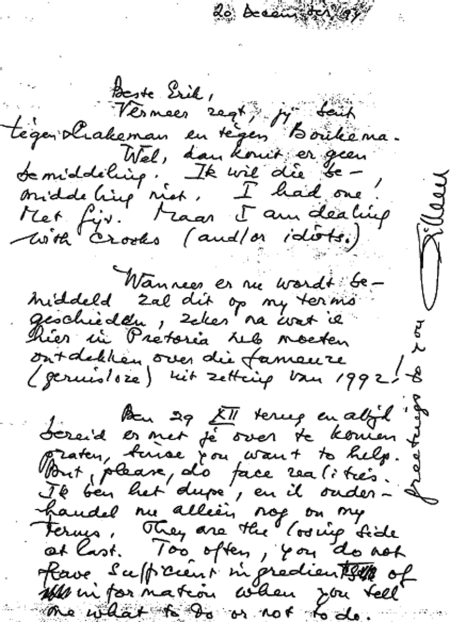 20 December '94
Beste Erik,
Vermeer zegt, jij bent
tegen Brakeman en tegen Boukema.
Wel, dan komt er geen
bemiddeling. Ik wil die be-
middeling niet. I had one.
Met Fijv. Maar I am dealing
with crooks (and/or idiots.)
Wanneer er nu wordt be-
middeld zal dit op my terms
geschieden, zeker na wat ik
hier in Pretoria heb moeten
ontdekken over die fameuze
(geruisloze) uitzetting van 1992!
Ben 29 XII terug en altijd
bereid er met je over te komen
praten, since you want to help.
But, please, do face realities.
Ik ben het dupe, en ik onder-
handel nu alleen nog on my
terms. They are the losing side
at last. Too often, you do not
have sufficient ingredients of
information when you tell
me what to do or not to do.
greetings to you
Willem